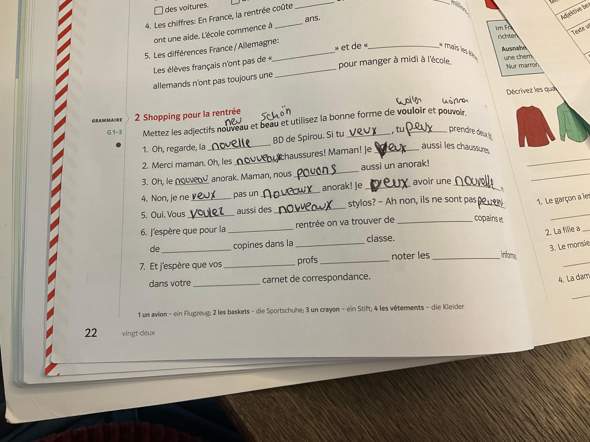 des voitures.
4. Les chiffres: En France, la rentrée coûte
ont une aide. L'école commence à ans.
5. Les différences France/Allemagne:
Les élèves français n'ont pas de « » et de « » mais les
allemands n'ont pas toujours une pour manger à midi à l'école.
GRAMMAIRE
G 1-3
2 Shopping pour la rentrée
neu schön wollen können
Mettez les adjectifs nouveau et beau et utilisez la bonne forme de vouloir et pouvoir.
1. Oh, regarde, la novelle BD de Spirou. Si tu veux, tu peux prendre
2. Merci maman. Oh, les chaussures! Maman! Je aussi les chaussures
3. Oh, le nouveau anorak. Maman, nous pouons aussi un anorak!
4. Non, je ne veux pas un nouveaux anorak! Je peux avoir une
5. Oui. Vous voulez aussi des nouveaux stylos? – Ah non, ils ne sont pas
6. J'espère que pour la rentrée on va trouver de copains et
de copines dans la classe.
7. Et j'espère que vos profs noter les
dans votre carnet de correspondance.
1 un avion – ein Flugzeug; 2 les baskets – die Sportschuhe; 3 un crayon – ein Stift; 4 les vêtements – die Kleider
22 vingt-deux
Im
richten
Ausnahm
une chem
Nur marron
Décrivez les
1. Le garçon a les
2. La fille a
3. Le monsie
4. La dam
Adjektive
Texte